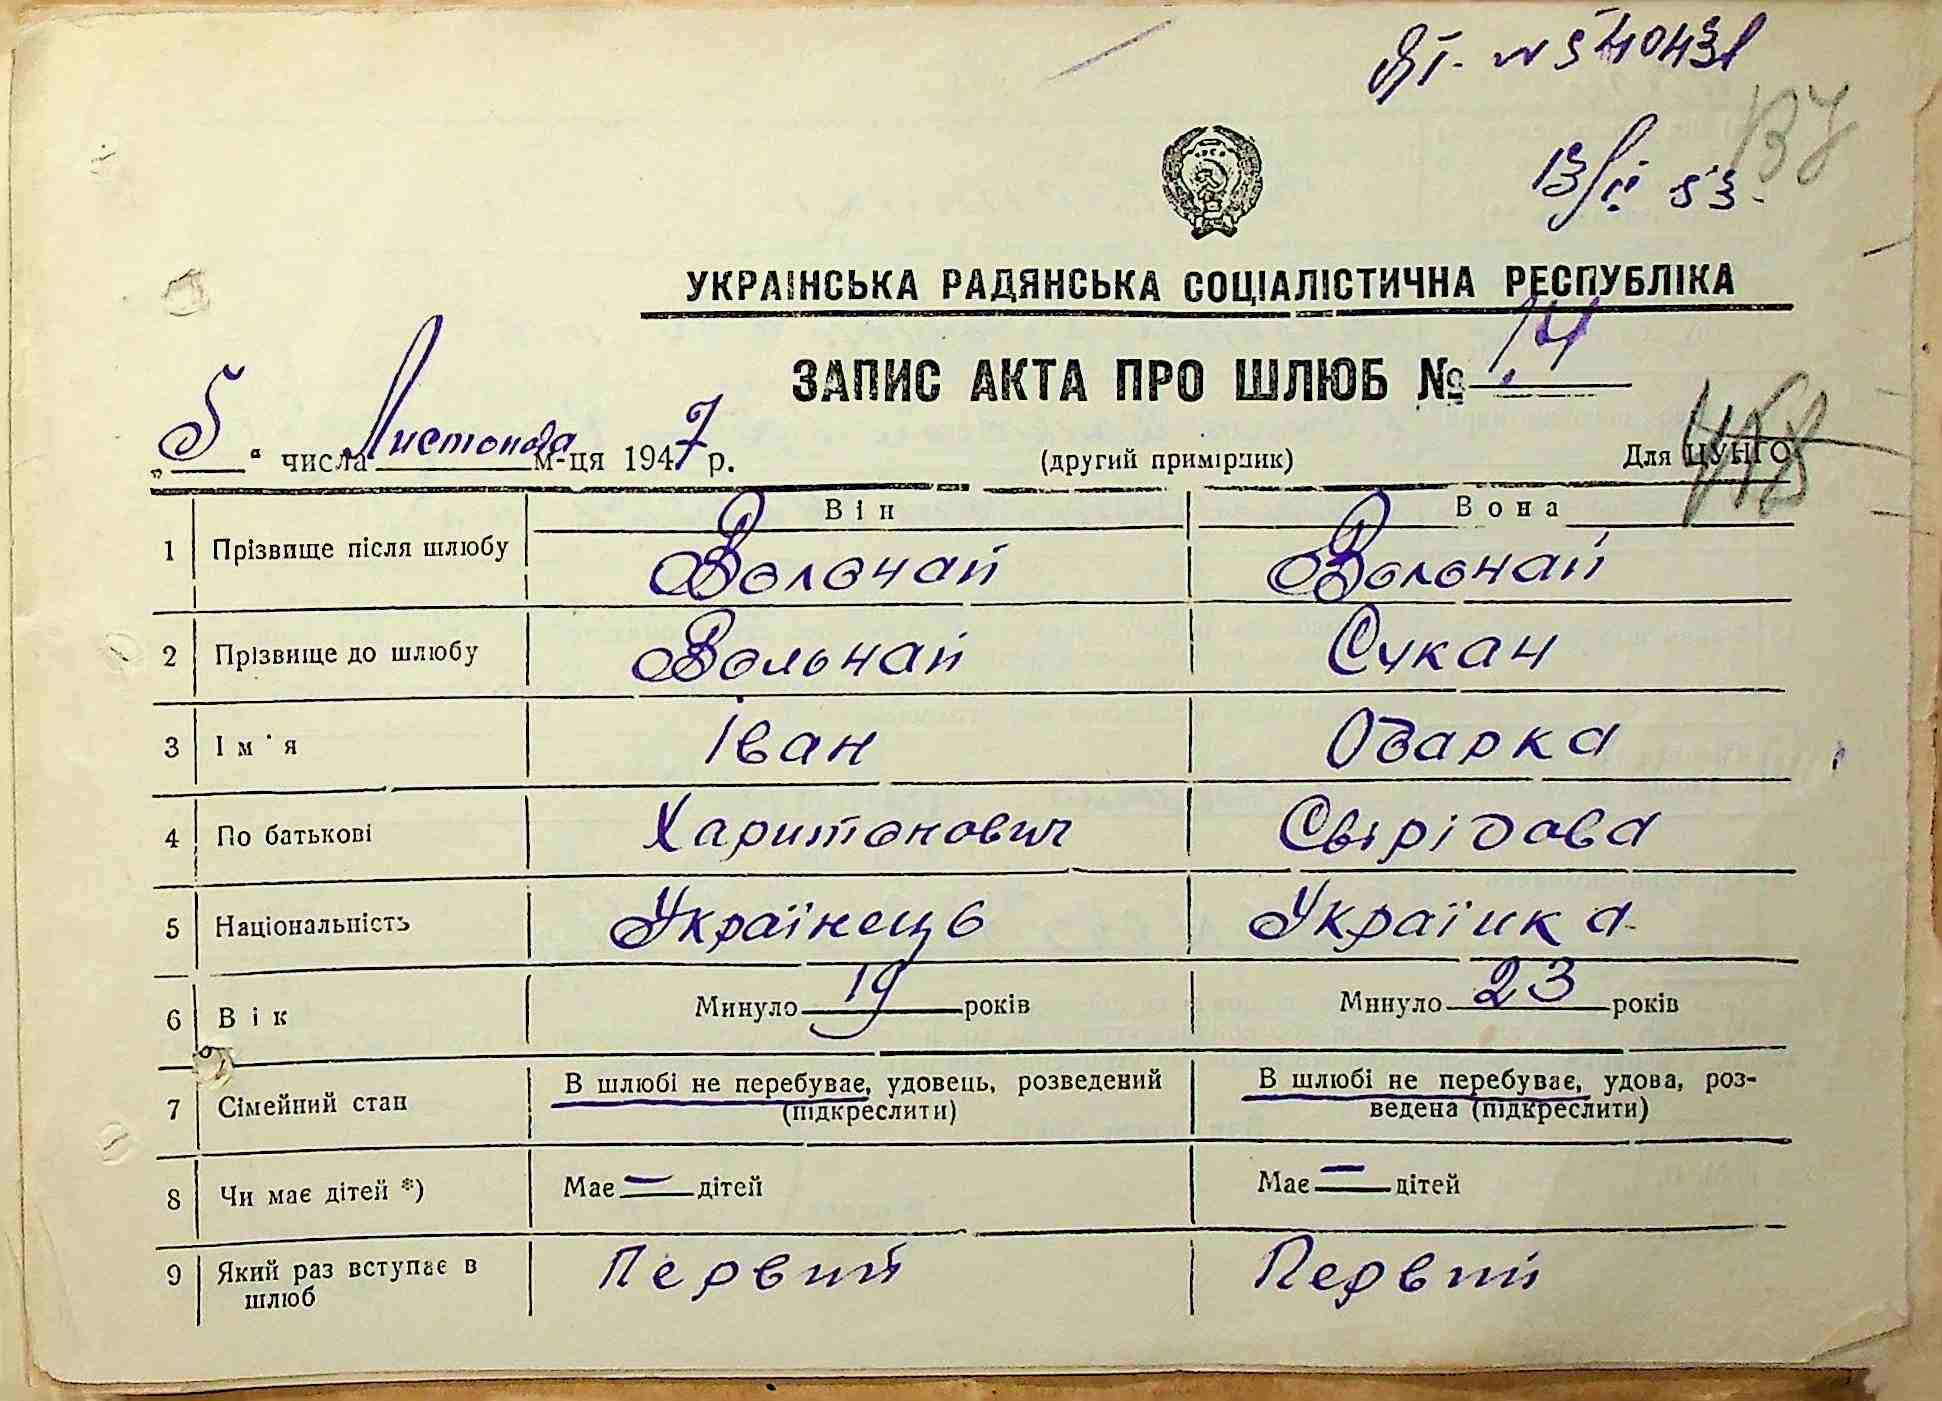 № 540431
13/II 53.
УКРАЇНСЬКА РАДЯНСЬКА СОЦІАЛІСТИЧНА РЕСПУБЛІКА
ЗАПИС АКТА ПРО ШЛЮБ № 14
„5“ числа Листопада м-ця 1947 р. (другий примірник) Для ЦУНГО
Він Вона
1 Прізвище після шлюбу Волочай Волочай
2 Прізвище до шлюбу Вольчай Сукач
3 Ім'я Іван Одарка
4 По батькові Харитонович Свірідова
5 Національність Українець Українка
6 Вік Минуло 19 років Минуло 23 років
7 Сімейний стан В шлюбі не перебуває, удовець, розведений (підкреслити) В шлюбі не перебуває, удова, роз-
ведена (підкреслити)
8 Чи має дітей *) Має — дітей Має — дітей
9 Який раз вступає в шлюб Первий Первий